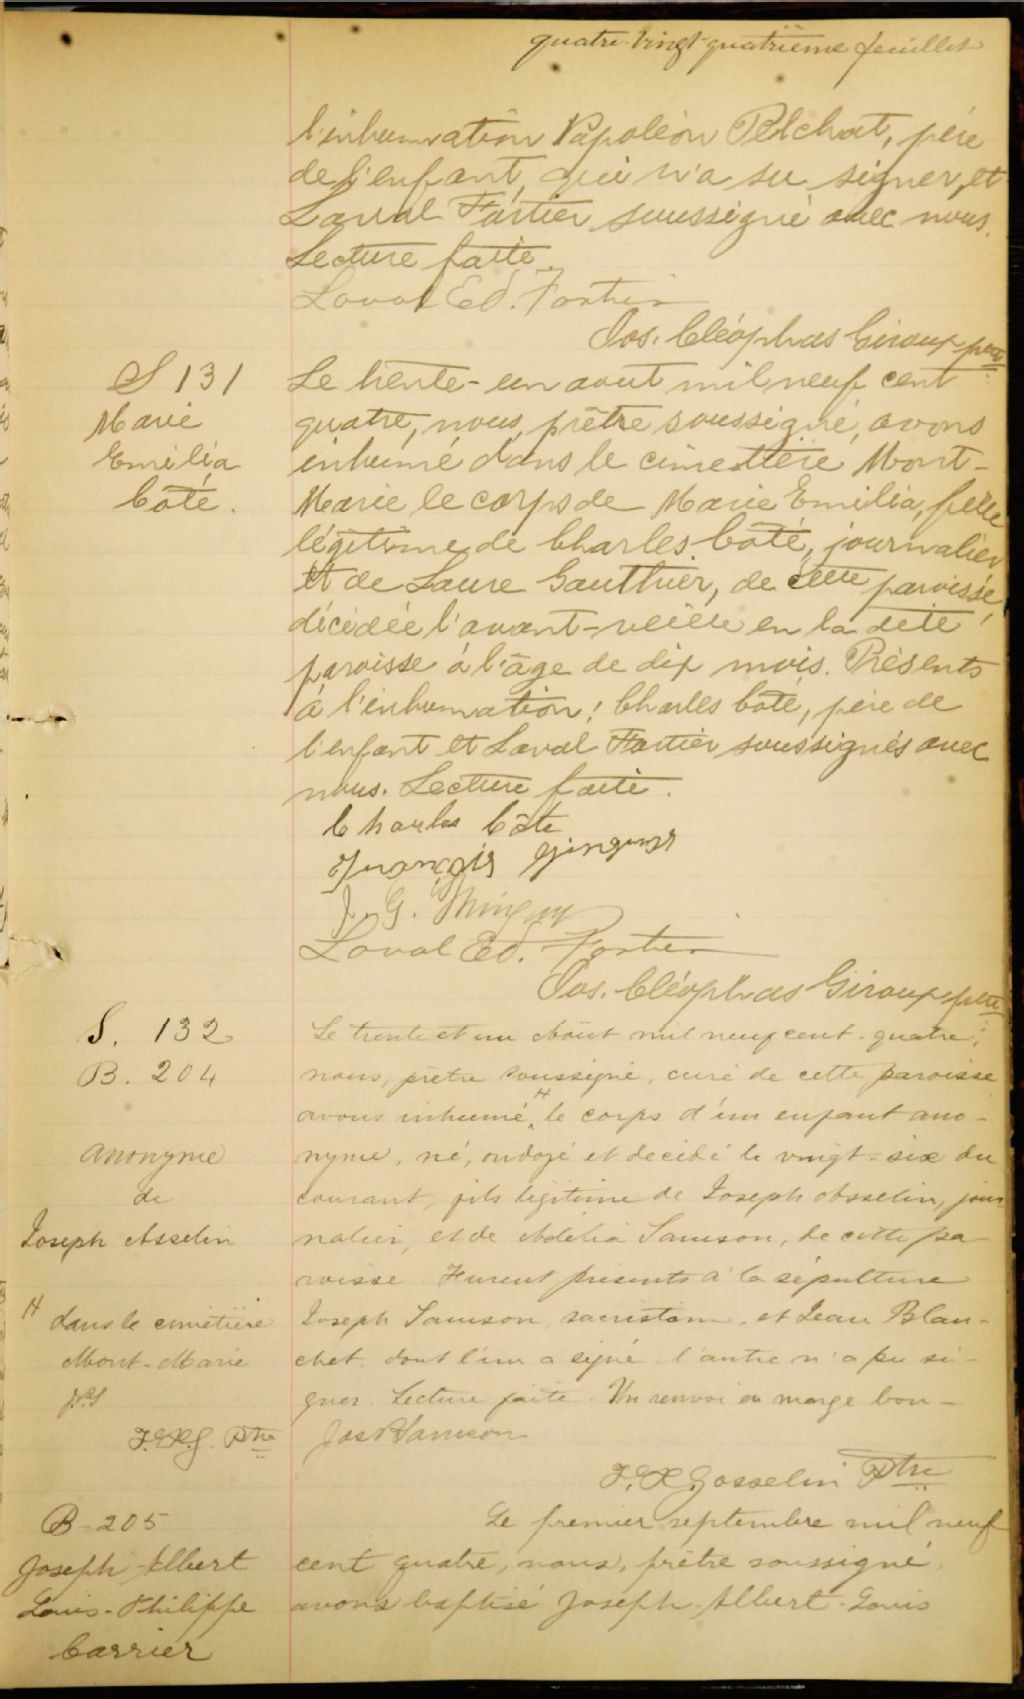 quatre-vingt-quatrième feuillet
l'inhumation Napoléon Pelchat, père
de l'enfant, qui n'a su signer, et
Laval Fortier soussigné avec nous.
Lecture faite.
Laval Ed. Fortier
Jos. Cléophas Giroux ptre
S 131
Marie
Emilia
Côté.
Le trente-un août mil neuf cent
quatre, nous, prêtre soussigné, avons
inhumé dans le cimetière Mont-
Marie le corps de Marie Emilia, fille
légitime de Charles Côté, journalier
et de Laure Gauthier, de cette paroisse,
décédée l'avant-veille en la dite
paroisse à l'âge de dix mois. Présents
à l'inhumation: Charles Côté, père de
l'enfant et Laval Fortier soussignés avec
nous. Lecture faite.
Charles Côté
François Gingras
J. G. Minguy
Laval Ed. Fortier
Jos. Cléophas Giroux, ptre
S. 132
B. 204
Anonyme
de
Joseph Asselin
Le trente et un Août mil neuf cent-quatre,
nous, prêtre soussigné, curé de cette paroisse
avons inhumé # le corps d'un enfant ano-
nyme, né, ondoyé et décédé le vingt-six du
courant, fils légitime de Joseph Asselin, jour-
nalier, et de Adélia Samson, de cette pa-
roisse. Furent présents à la sépulture
Joseph Samson, sacristain, et Jean Blan-
chet, dont l'un a signé, l'autre n'a pu si-
gner. Lecture faite. Un renvoi en marge bon-
# dans le cimetière
Mont-Marie
J.S
F.X.G. Ptre
Jos Samson
F. X. Gosselin Ptre
B-205
Joseph-Albert
Louis-Philippe
Carrier
Le premier septembre mil neuf
cent quatre, nous, prêtre soussigné,
avons baptisé Joseph-Albert-Louis